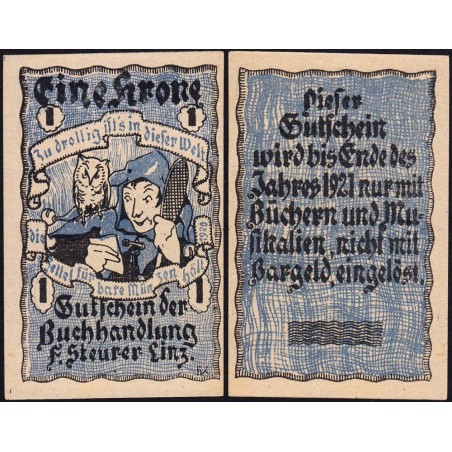 Eine Krone
1 1
Zu drollig ist's in dieser Welt,
die
Zettel für
bare Münzen hält
1920
1 1
Gutschein der
Buchhandlung
F. Steurer Linz.
Dieser
Gutschein
wird bis Ende des
Jahres 1921 nur mit
Büchern und Mu-
sikalien, nicht mit
Bargeld, eingelöst.